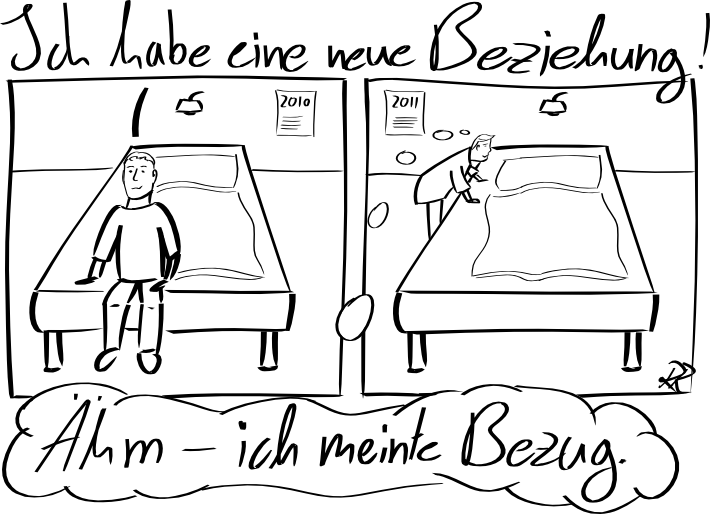 Ich habe eine neue Beziehung!
2010
2011
Ähm – ich meinte Bezug.